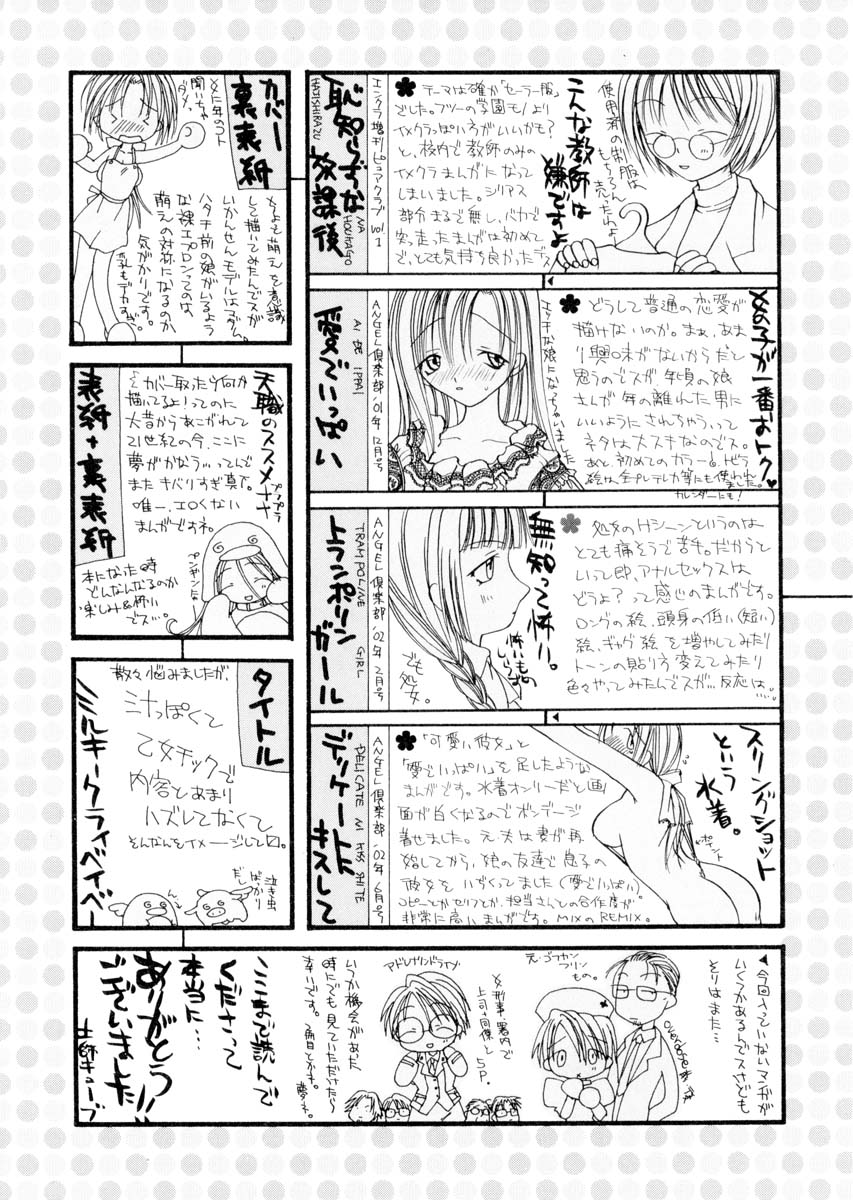 こんな教師は
嫌ですよ
使用済の制服は
もちろん
売ったわよ
テーマは確か「セーラー服」
でした。フツーの学園モノより
イメクラっぽい方がいいかも?
と、校内で教師のみの
イメクラまんがになって
しまいました。シリアス
部分まるで無し、バカで
突っ走ったまんがは初めて
で、とても気持ち良かったデス
エンジェル増刊ピュアクラブ vol.1
恥知らずな放課後
HAJISHIRAZU NA HOUKAGO
女の子が一番おトク♥
どうして普通の恋愛が
描けないのか。まぁ、あま
り興味がないからだと
思うのでスが、年頃の娘
さんが年の離れた男に
いいようにされちゃう、って
ネタは大スキなのでス。
あと、初めてのカラー。トビラ
絵は全プレテレカ等にも使われ
ました。
カレンダーにも!
エッチな娘になってもいました
ANGEL倶楽部 '01年12月号
AI DE IPPAI
愛でいっぱい
無知って怖い。
怖いもの
しらず
でも
処女。
処女のHシーンというのは
とても痛そうで苦手。だからと
いって即、アナルセックスは
どうよ?って感じのまんがです。
ロングの絵、頭身の低い(短い)
絵、ギャグ絵を増やしてみたり
トーンの貼り方変えてみたり
色々やってみたんでスが…反応は…。
ANGEL倶楽部 '02年2月号
TRAMPOLINE GIRL
トランポリンガール
スリングショット
という
水着。
「可愛い彼女」と
「愛でいっぱい」を足したような
まんがです。水着オンリーだと画
面が白くなるのでボンデージ
着せました。元・夫は妻が再
婚してから、娘の友達で息子の
彼女をいぢくってました(愛でいっぱい)
コピーとかセリフとか、担当さんとの合作度が
非常に高いまんがです。MIXのREMIX。
ANGEL倶楽部 '02年6月号
DELICATE NI KISS SHITE
デリケートにキスして
カバー
裏表紙
女に年のコト
聞いちゃ
ダメ。
メイドで萌えを意識
して描いてみたんでスが
いかんせんモデルはマダム。
ハタチ前の娘がいるよう
な裸エプロンってのは、
萌えの対称になるのか
気がかりです。
乳もデカすぎ
表紙+裏表紙
天職のススメ
プラプラ
「カバー取ったら何か
描いてるよ!」ってのに
大昔からあこがれて
21世紀の今、ここに
夢がかなう…ってんで
またキバりすぎ真下。
唯一、エロくない
まんがですネ。
ペンギンだー
本になった時
どんなんなるのか
楽しみ&怖い
でス…。
タイトル
散々悩みましたが、
三汁っぽくて
乙女チックで
内容とあまり
ハズレてなくて
そんなんをイメージして□。
ミルキークライベイベー
泣き虫
ばっかり
だし
◀今回入っていないマンガが
いくつかあるんでスけども
そりはまた…
overdoseあーな
元・ゴーカン
フリン
もの。
女刑事・署内で
上司+同僚と5P。
アドレナリンドライブ
いつか機会があった
時にでも見ていただけたら
幸いです。2冊目とかネ。夢ネ。
ここまで読んで
くださって
本当に…
ありがとう!!
ございました!!
土師キューブ